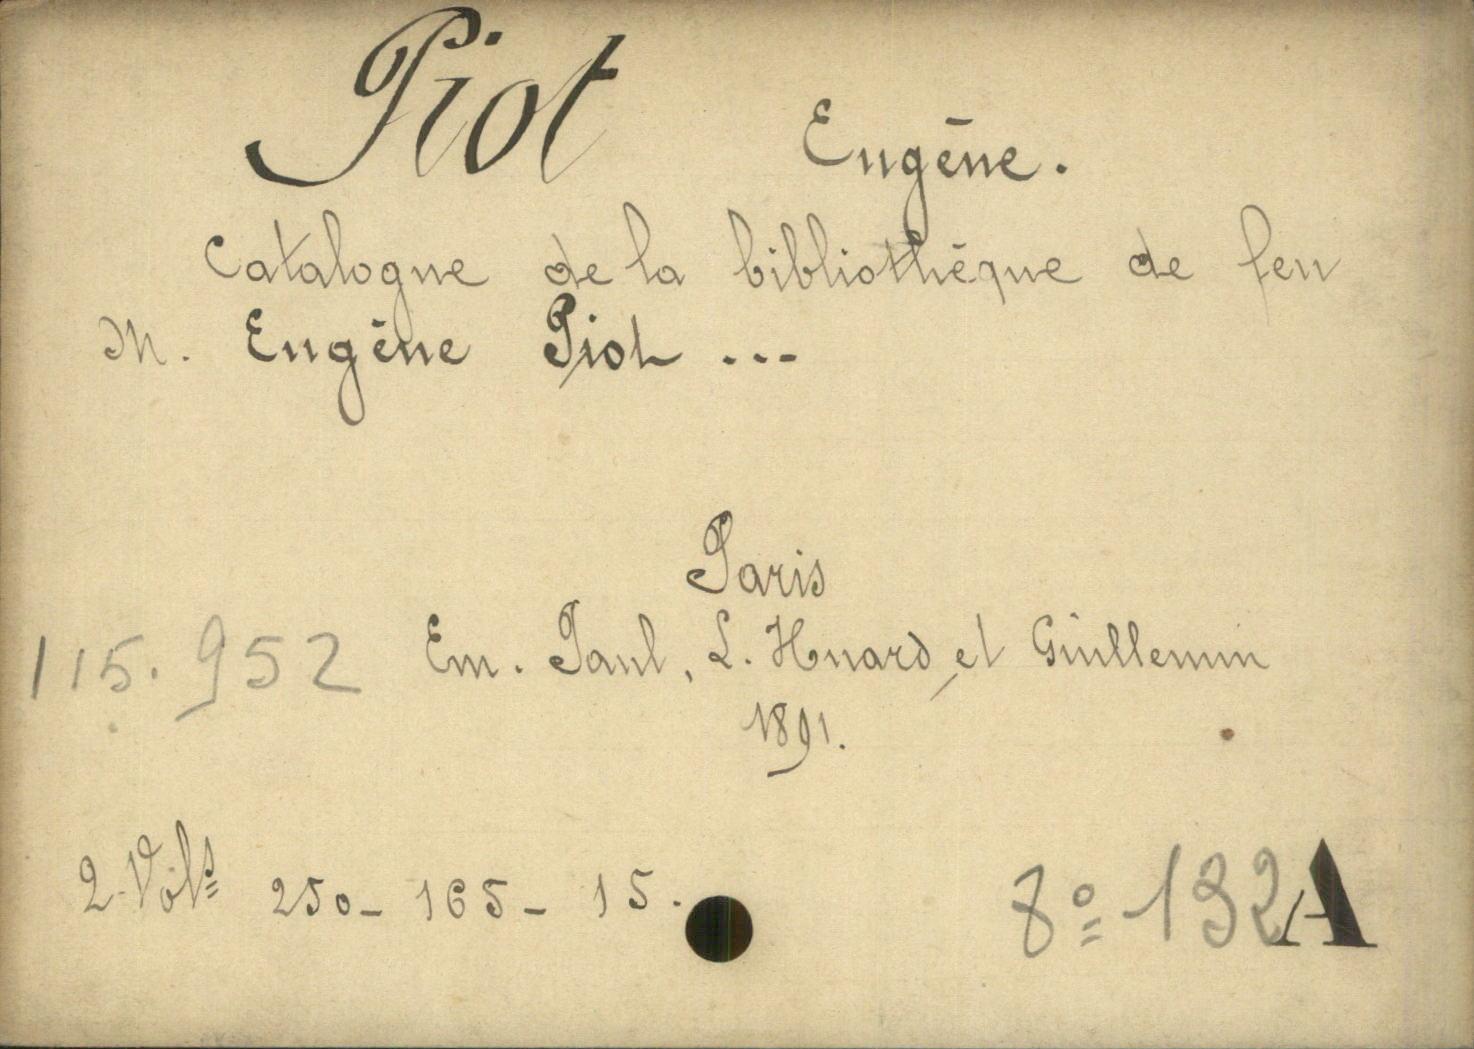 Piot Eugène.
Catalogue de la bibliothèque de feu
M. Eugène Piot ...
Paris
115.952 Em. Paul, L. Huard et Guillemin
1891.
2 Vols 250 - 165 - 15.
8º - 132 A